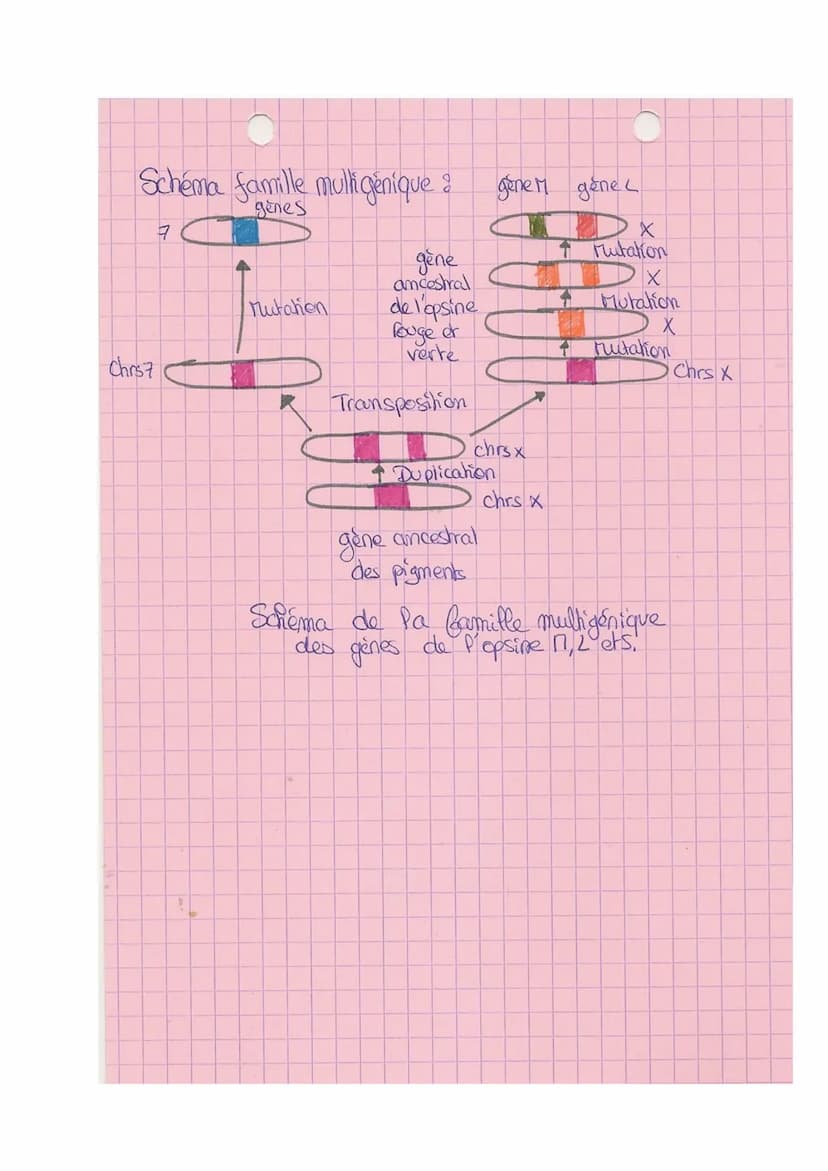 Schéma famille multigénique :
gène M gène L
gène S
7
X
Mutation
X
gène
ancestral
de l'opsine
rouge et
verte
Mutation
Mutation
X
Mutation
Chrs 7
Chrs X
Transposition
chrs x
Duplication
chrs X
gène ancestral
des pigments
Schéma de la famille multigénique
des gènes de l'opsine M, L et S.